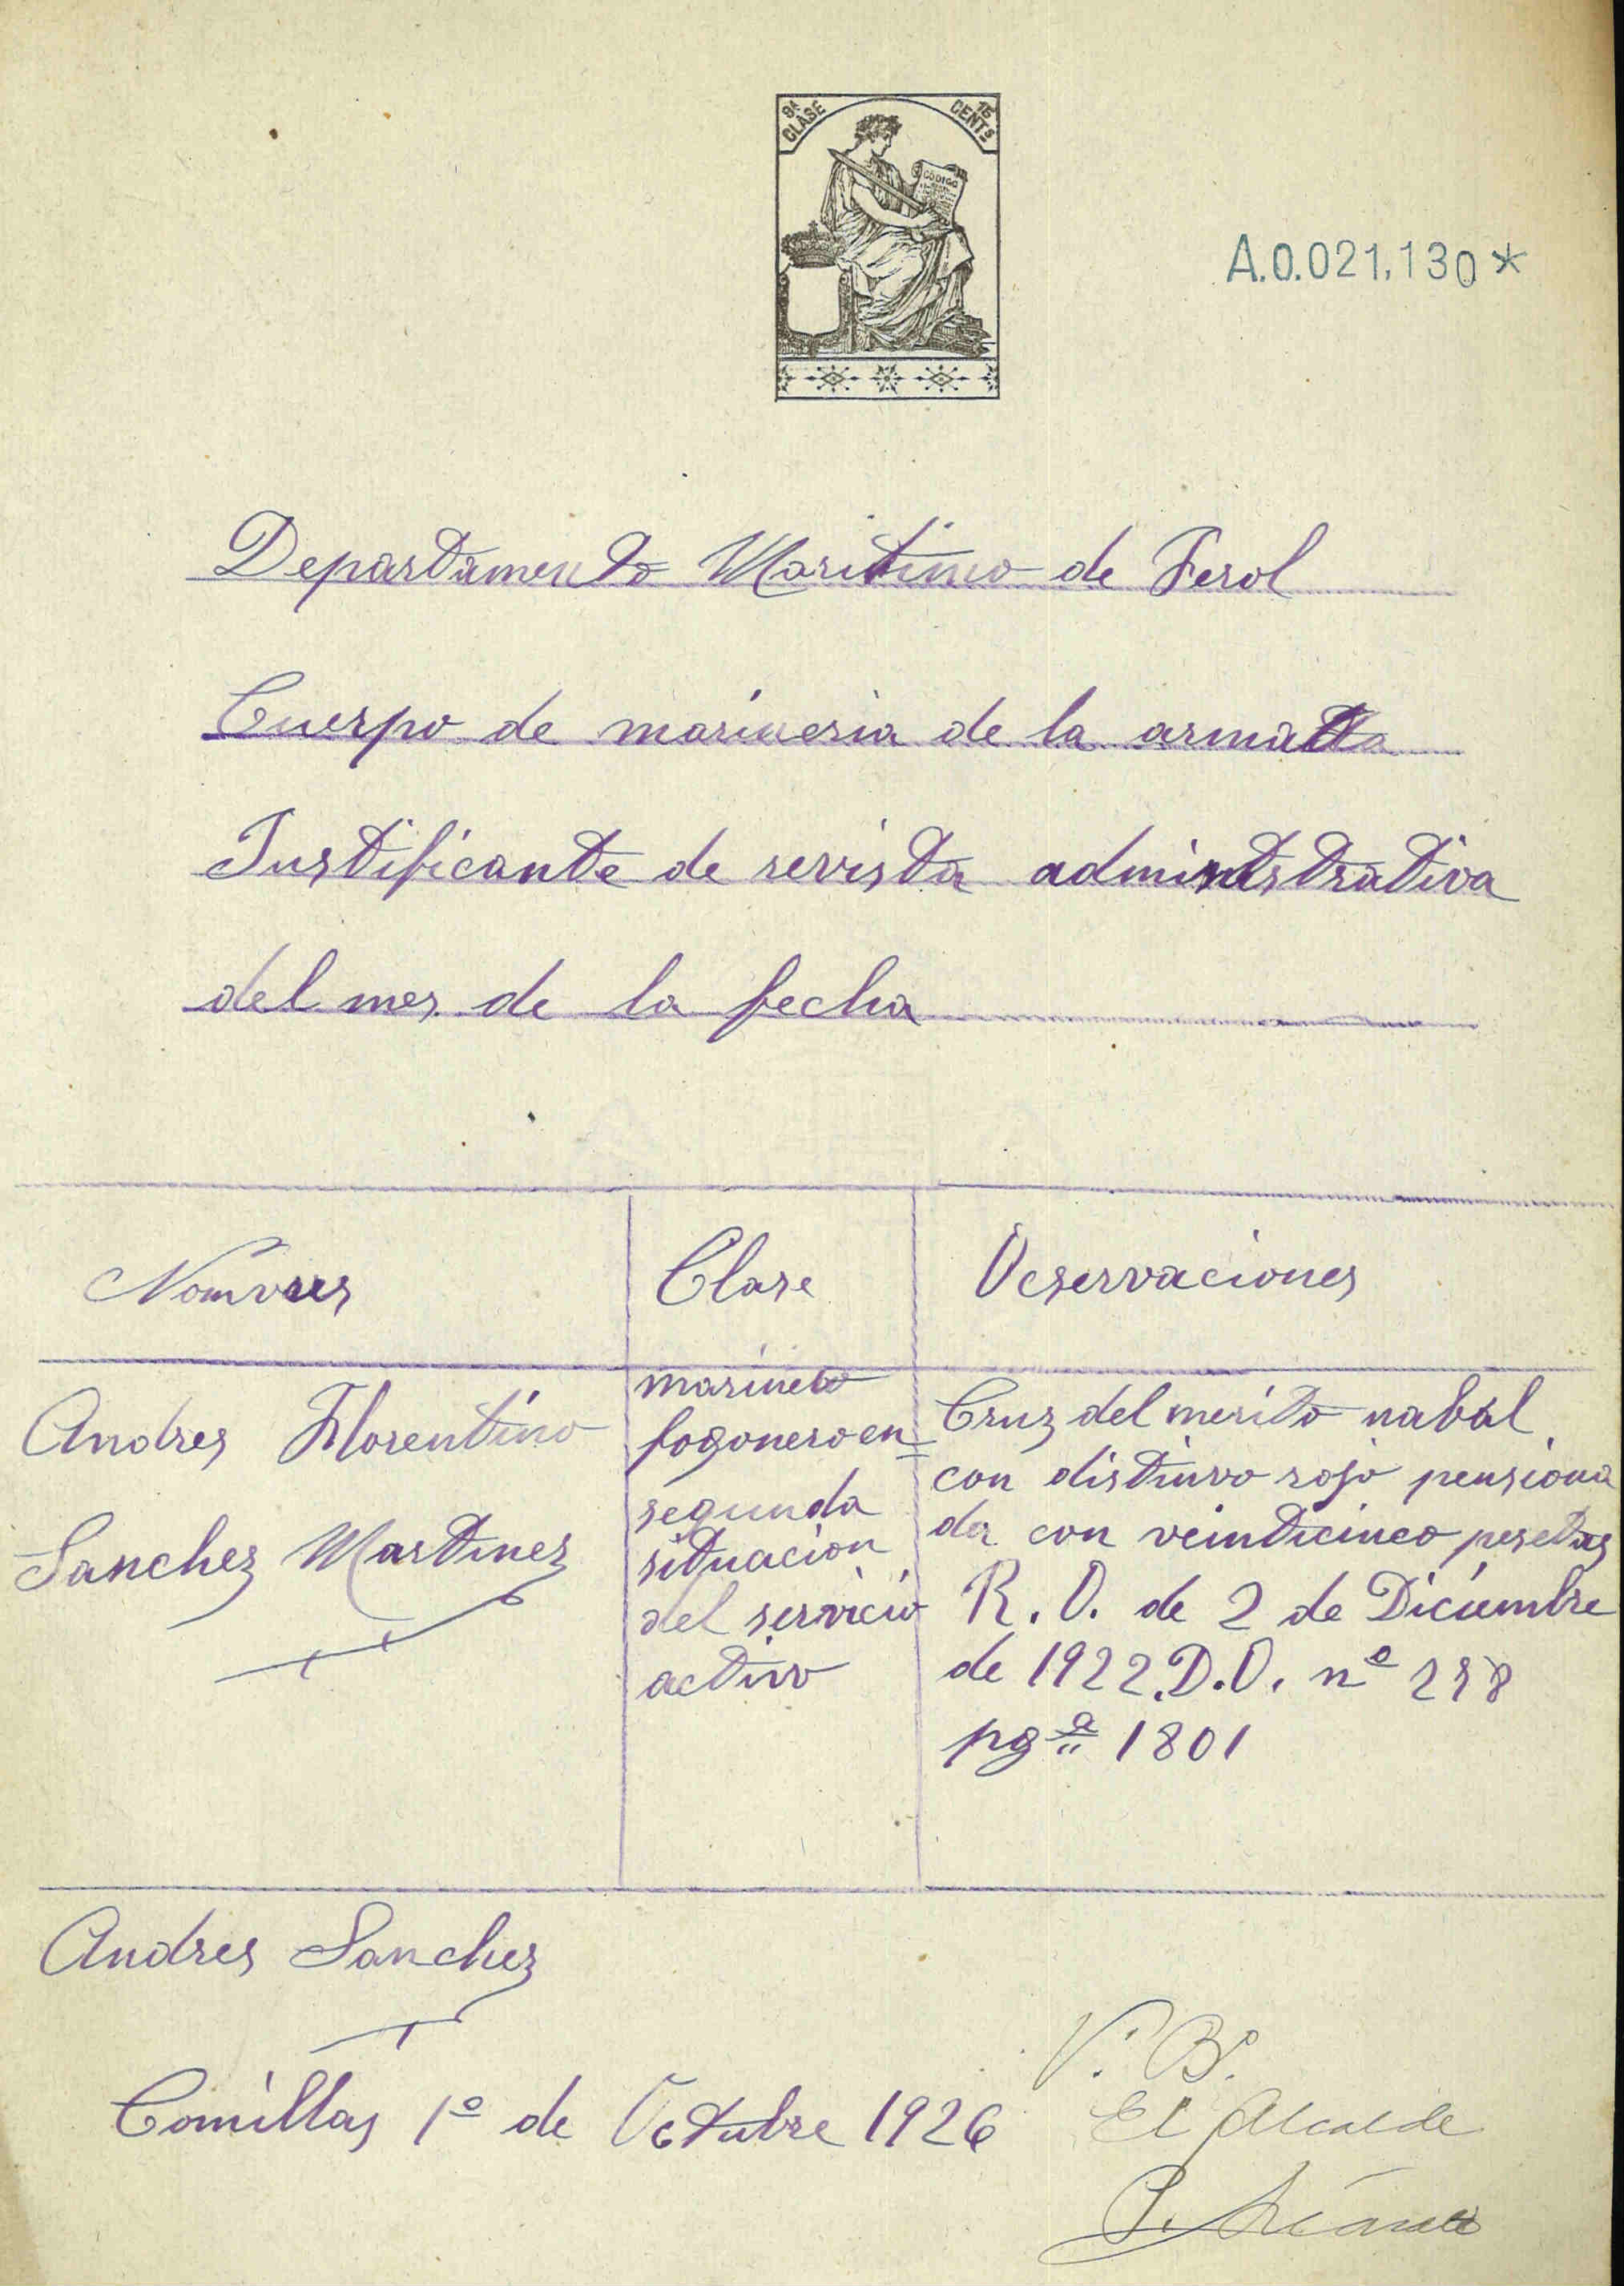 9ª CLASE 15 CENTs
CODIGO
A.0.021,130*
Departamento Maritimo de Ferol
Cuerpo de marineria de la armada
Justificante de revista administrativa
del mes de la fecha
Nomvres Clase Ocservaciones
Andres Florentino
Sanchez Martinez
marinero
fogonero en
segunda
situacion
del servicio
activo
Cruz del merito nabal
con distinvo rojo pensiona
da con veinticinco pesetas
R. O. de 2 de Diciembre
de 1922. D. O. nº 278
pgª 1801
Andres Sanchez
Comillas 1º de Octubre 1926
V. Bº.
El Alcalde